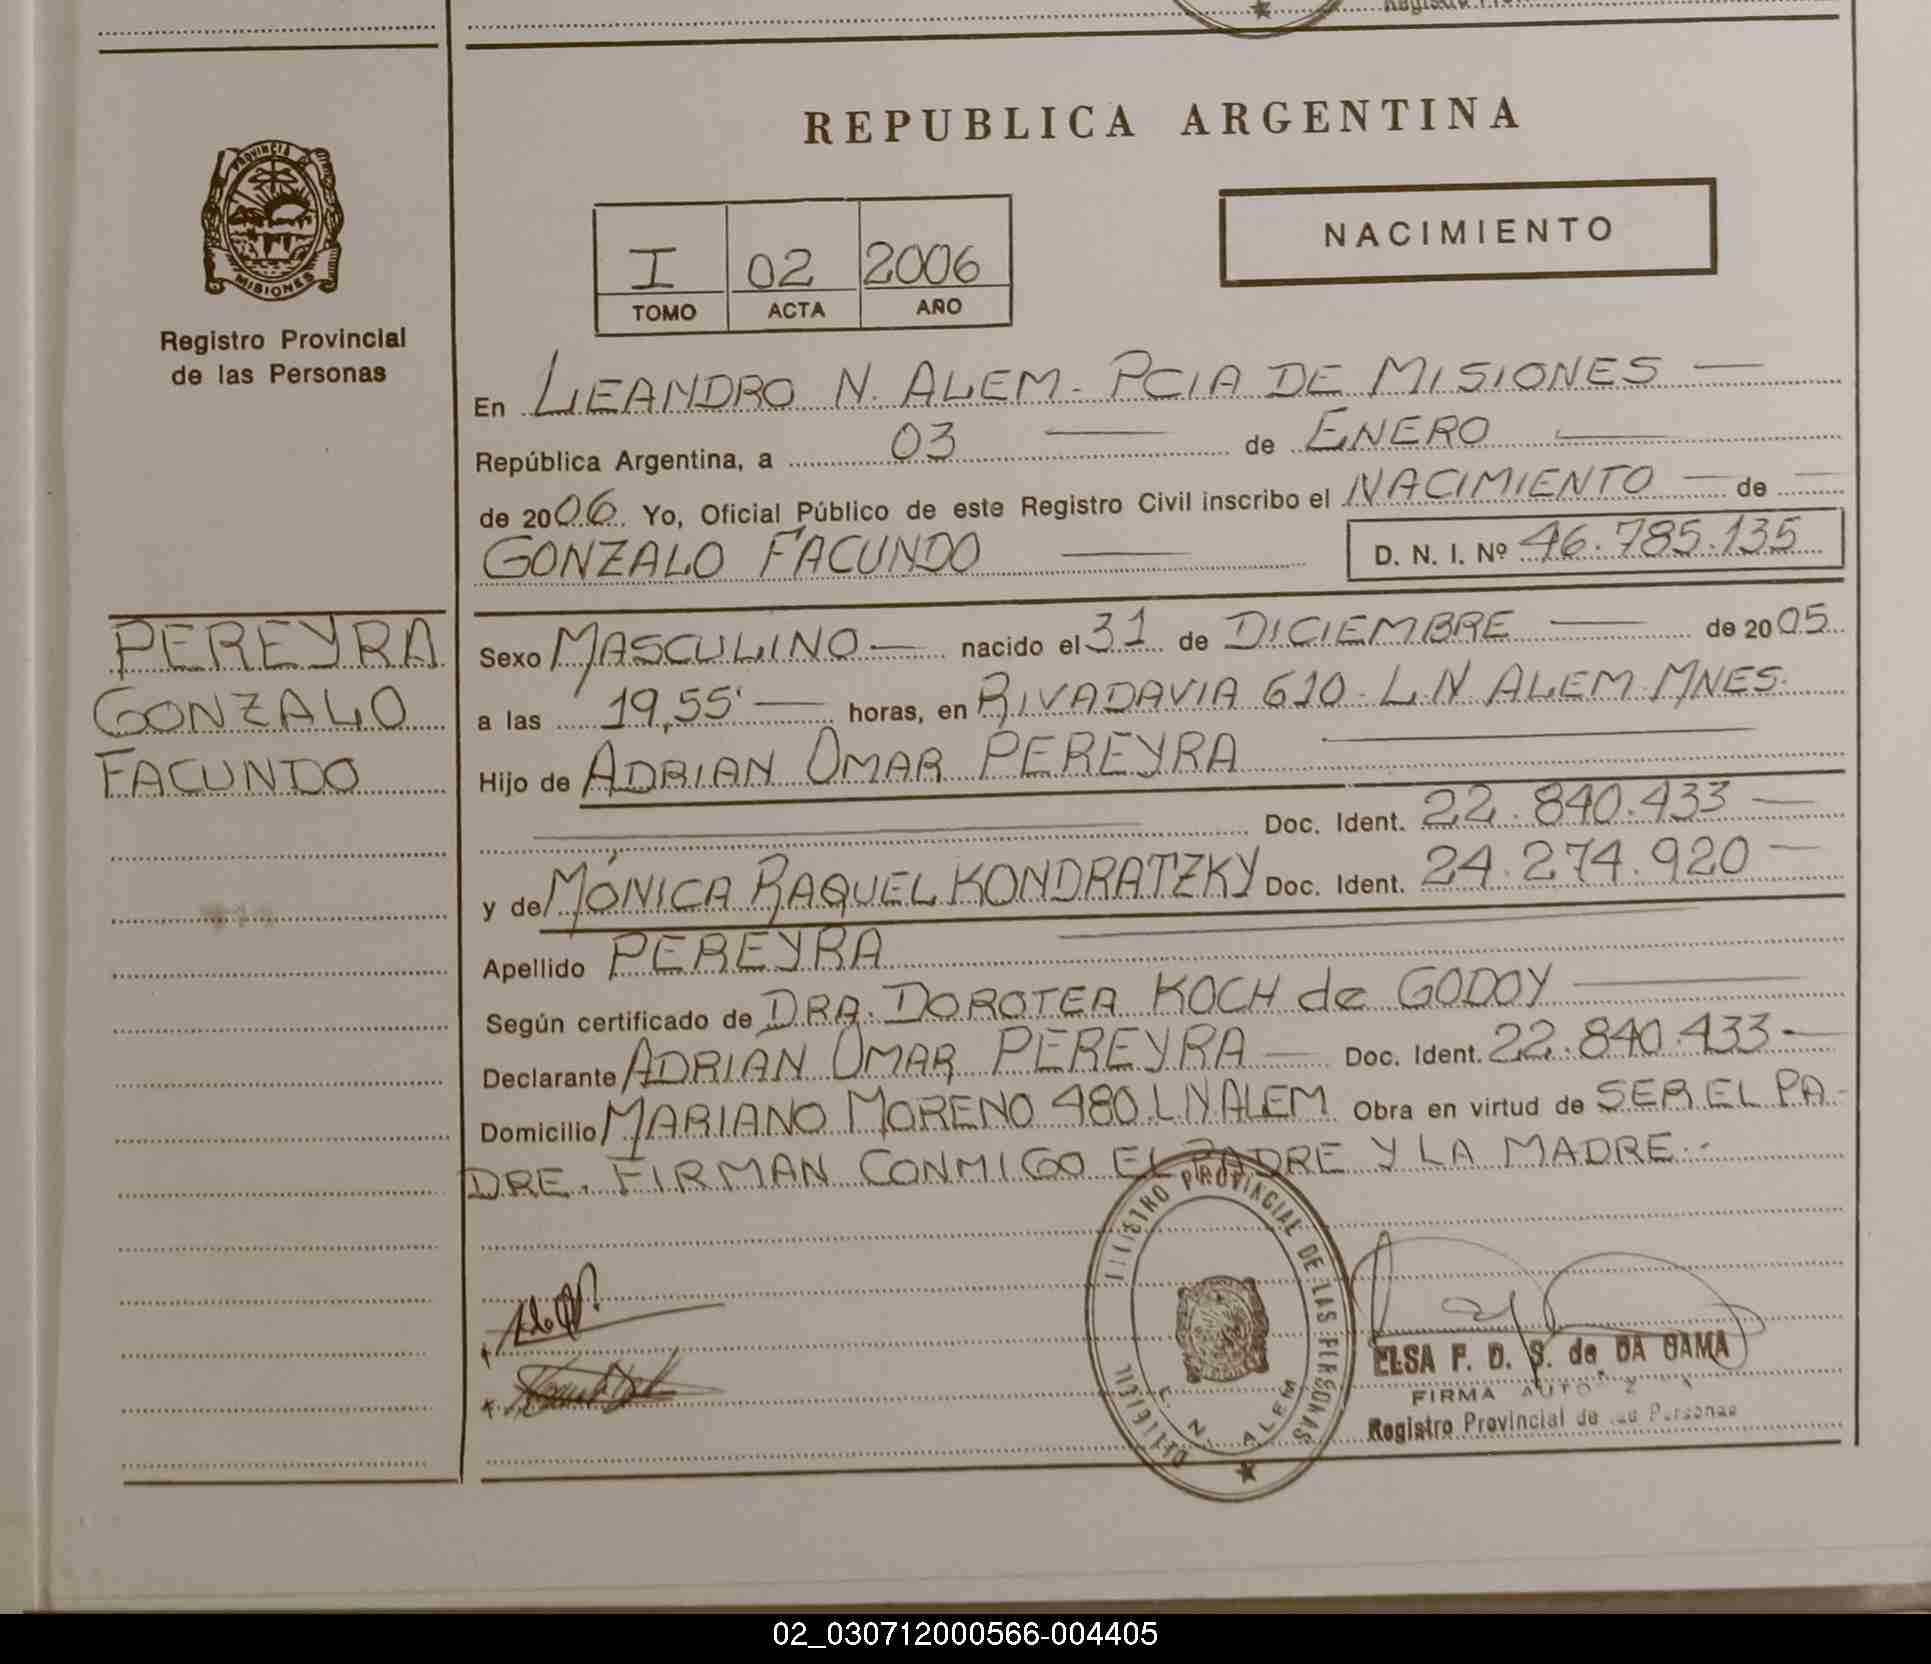 REPUBLICA ARGENTINA
PROVINCIA
MISIONES
Registro Provincial
de las Personas
NACIMIENTO
I 02 2006
TOMO ACTA AÑO
En LEANDRO N. ALEM - PCIA DE MISIONES —
República Argentina, a 03 — de ENERO —
de 2006 Yo, Oficial Público de este Registro Civil inscribo el NACIMIENTO — de —
GONZALO FACUNDO — D. N. I. Nº 46.785.135
PEREYRA
GONZALO
FACUNDO
Sexo MASCULINO — nacido el 31 de DICIEMBRE — de 2005
a las 19,55' — horas, en RIVADAVIA 610 - L N ALEM - MNES.
Hijo de ADRIAN OMAR PEREYRA —
— Doc. Ident. 22.840.433 —
y de MÓNICA RAQUEL KONDRATZKY Doc. Ident. 24.274.920 —
Apellido PEREYRA —
Según certificado de DRA. DOROTEA KOCH de GODOY —
Declarante ADRIAN OMAR PEREYRA — Doc. Ident. 22.840.433 —
Domicilio MARIANO MORENO 480 L N ALEM Obra en virtud de SER EL PA-
DRE. FIRMAN CONMIGO EL PADRE Y LA MADRE.-
PROVINCIAL DE LAS PERSONAS
L. N. ALEM
ELSA F. D. S. de DA GAMA
FIRMA
Registro Provincial de las Personas
02_030712000566-004405